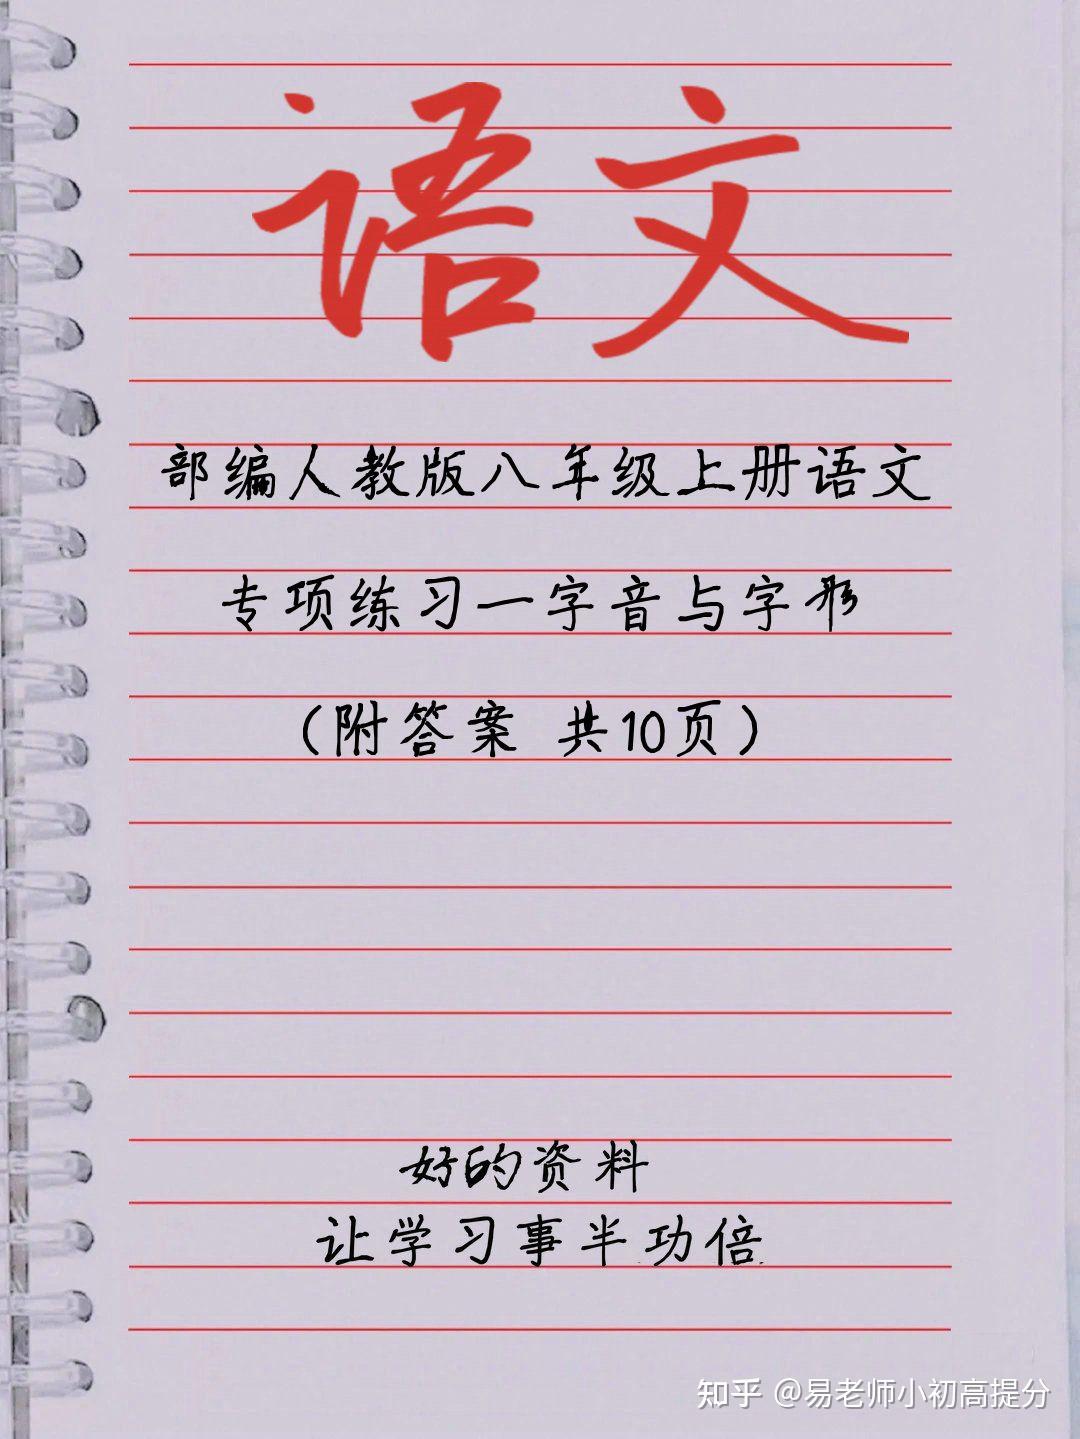 语文
部编人教版八年级上册语文
专项练习一字音与字形
(附答案 共10页)
好的资料
让学习事半功倍
知乎 @易老师小初高提分